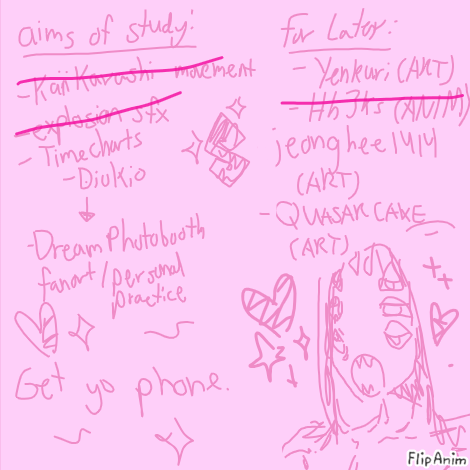 aims of study:
-KaiiKarashi movement
explosion sfx
- Timecharts
- Diukio
-Dream Photobooth
fanart/personal
practice
Get yo phone.
For Later:
- Yenkuri (ART)
- Hh3hs (ANIM)
jeonghee1414
(ART)
- QUASAR CAKE
(ART)
FlipAnim